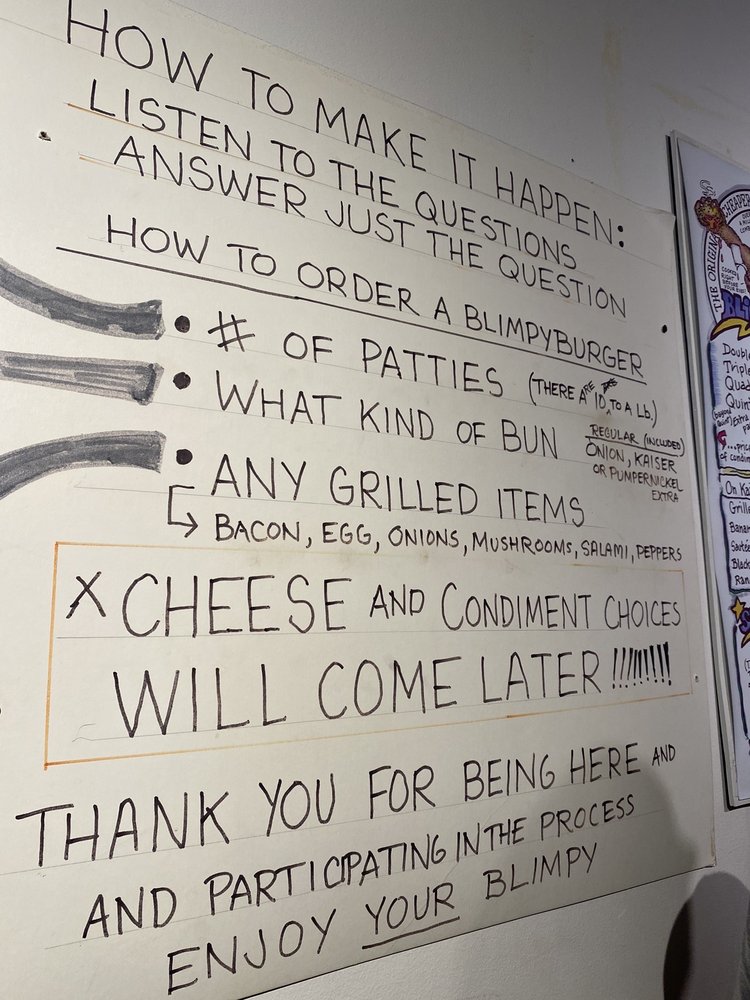 HOW TO MAKE IT HAPPEN:
LISTEN TO THE QUESTIONS
ANSWER JUST THE QUESTION
HOW TO ORDER A BLIMPYBURGER
• # OF PATTIES (THERE ARE 10 TO A Lb.)
• WHAT KIND OF BUN
REGULAR (INCLUDED)
ONION, KAISER
OR PUMPERNICKEL
EXTRA
• ANY GRILLED ITEMS
BACON, EGG, ONIONS, MUSHROOMS, SALAMI, PEPPERS
X CHEESE AND CONDIMENT CHOICES
WILL COME LATER !!!!!!!!!
THANK YOU FOR BEING HERE AND
AND PARTICIPATING IN THE PROCESS
ENJOY YOUR BLIMPY
THE ORIGINAL
CHEAPER
Double
Triple
Quad
Quint
On Ka
Grille
Banan
Black